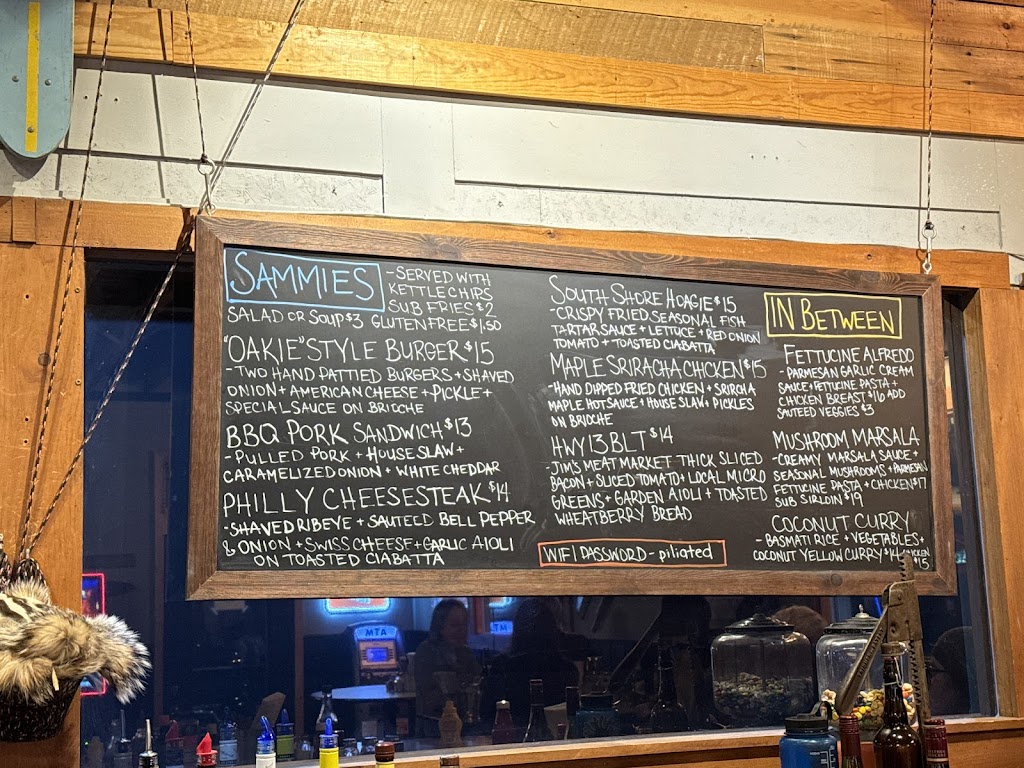 SAMMIES
- SERVED WITH
KETTLE CHIPS
SUB FRIES $2
SALAD OR SOUP $3 GLUTEN FREE $1.50
"OAKIE" STYLE BURGER $15
- TWO HAND PATTIED BURGERS + SHAVED
ONION + AMERICAN CHEESE + PICKLE +
SPECIAL SAUCE ON BRIOCHE
BBQ PORK SANDWICH $13
- PULLED PORK + HOUSE SLAW +
CARAMELIZED ONION + WHITE CHEDDAR
PHILLY CHEESESTEAK $14
- SHAVED RIBEYE + SAUTEED BELL PEPPER
& ONION + SWISS CHEESE + GARLIC AIOLI
ON TOASTED CIABATTA
SOUTH SHORE HOAGIE $15
- CRISPY FRIED SEASONAL FISH
TARTAR SAUCE + LETTUCE + RED ONION
TOMATO + TOASTED CIABATTA
MAPLE SRIRACHA CHICKEN $15
- HAND DIPPED FRIED CHICKEN + SRIRCHA
MAPLE HOT SAUCE + HOUSE SLAW + PICKLES
ON BRIOCHE
HWY 13 BLT $14
- JIM'S MEAT MARKET THICK SLICED
BACON + SLICED TOMATO + LOCAL MICRO
GREENS + GARDEN AIOLI + TOASTED
WHEATBERRY BREAD
WIFI PASSWORD - piliated
IN BETWEEN
FETTUCINE ALFREDO
- PARMESAN GARLIC CREAM
SAUCE + FETTUCINE PASTA +
CHICKEN BREAST $16 ADD
SAUTEED VEGGIES $3
MUSHROOM MARSALA
- CREAMY MARSALA SAUCE +
SEASONAL MUSHROOMS + PARMESAN
FETTUCINE PASTA + CHICKEN $17
SUB SIRLOIN $19
COCONUT CURRY
- BASMATI RICE + VEGETABLES +
COCONUT YELLOW CURRY $14 CHICKEN
$15
MTA